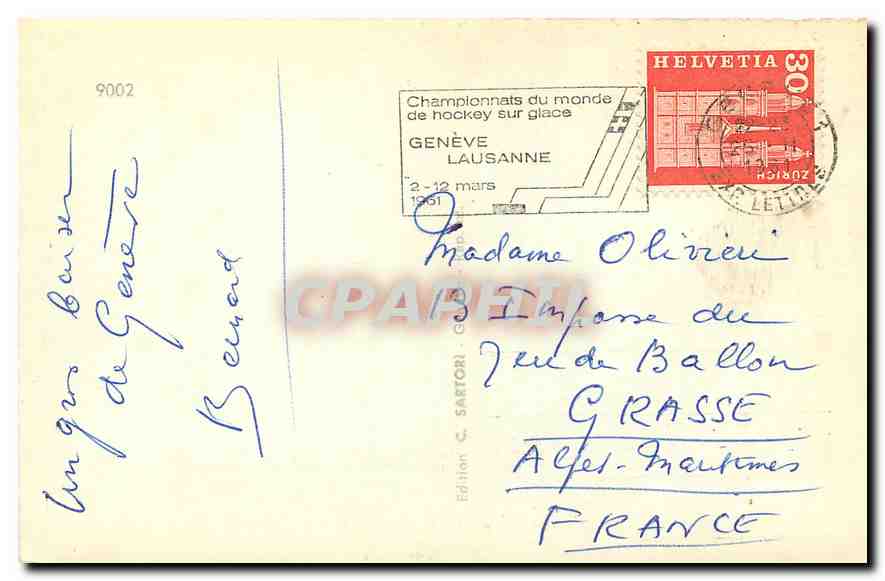 9002
Un gros baiser
de Genève
Bernard
Championnats du monde
de hockey sur glace
GENÈVE
LAUSANNE
2-12 mars
1961
HELVETIA
30
ZÜRICH
EXP. LETTRES
Madame Olivieri
13 Impasse du
Jeu de Ballon
GRASSE
Alpes-Maritimes
FRANCE
Edition C. SARTORI -
CPAPHIL